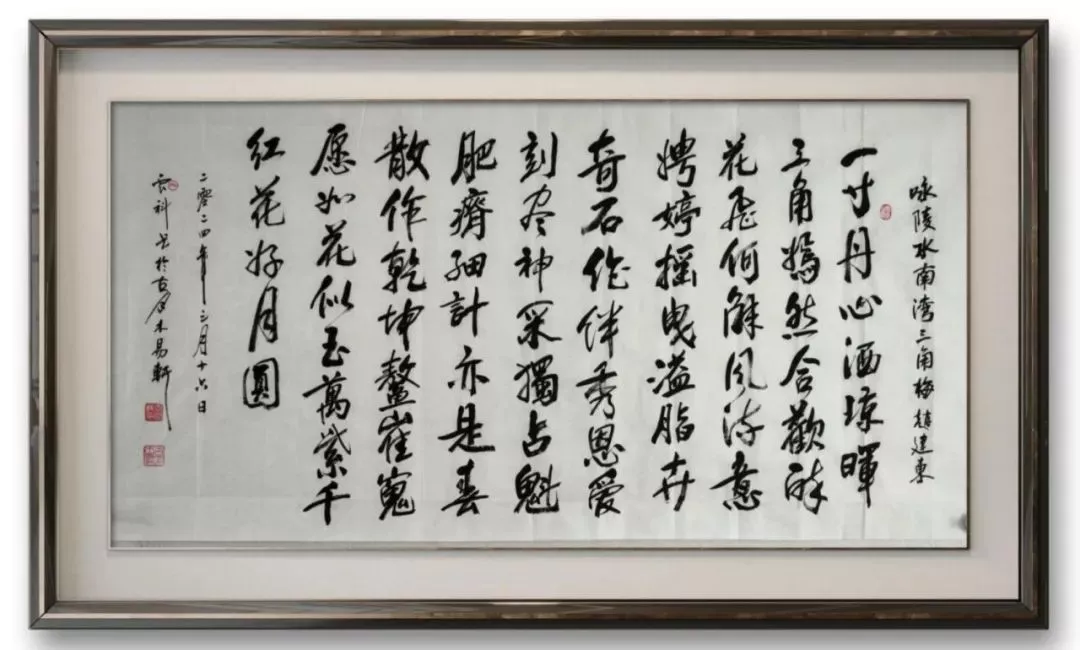 咏陵水南湾三角梅赵建东
一寸丹心洒琼晖
三角嫣然合歡醉
花飛何解风流意
娉婷摇曳溢脂卉
奇石作伴秀恩爱
刻尽神采獨占魁
肥瘠細計亦是春
散作乾坤鳌崔嵬
愿如花似玉萬紫千
红花好月圓
二零二四年三月十六日
科书於古月木易軒